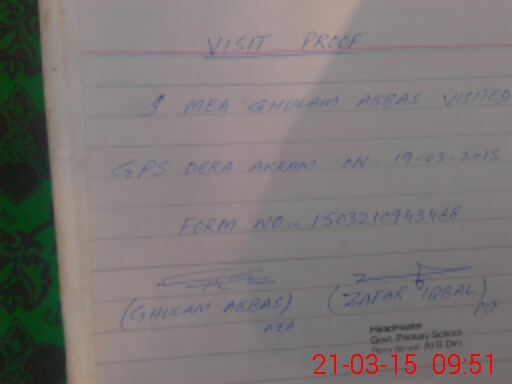 VISIT PROOF
I MEA GHULAM ABBAS VISITED
GPS DERA AKRAM ON. 19-03-2015
FORM NO:- 1503210943468
(GHULAM ABBAS) (ZAFAR IQBAL)
MEA PST
Headmaster
Govt. Primary School
Dera Akram (M.B.Din)
21-03-15 09:51